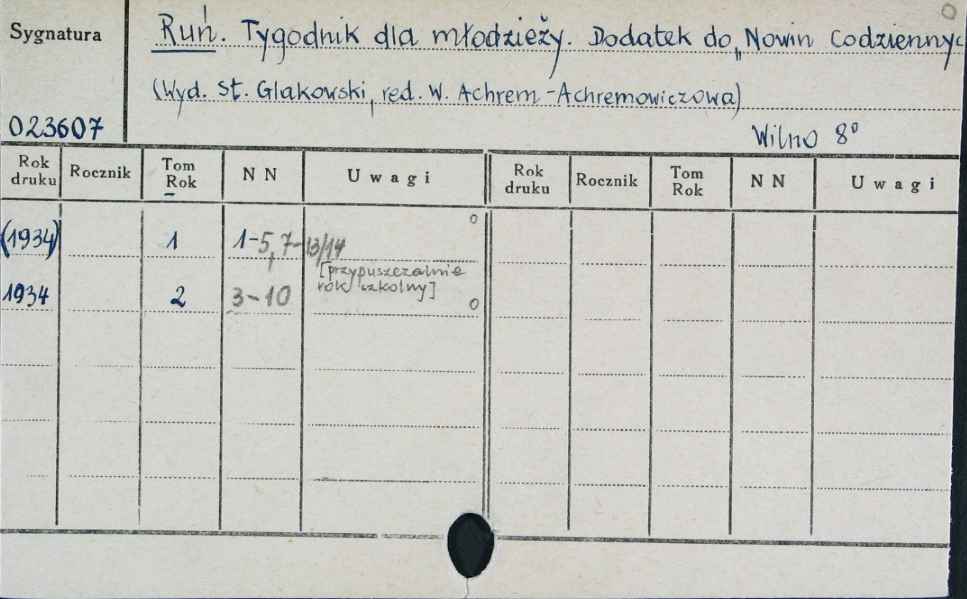 Sygnatura
Ruń. Tygodnik dla młodzieży. Dodatek do „Nowin Codziennyc
(Wyd. St. Glakowski, red. W. Achrem-Achremowiczowa)
023607
Wilno 8°
Rok druku Rocznik Tom Rok N N Uwagi Rok druku Rocznik Tom Rok N N Uwagi
(1934) 1 1-5, 7-13/14
[przypuszczalnie
1934 2 3-10 rok szkolny]